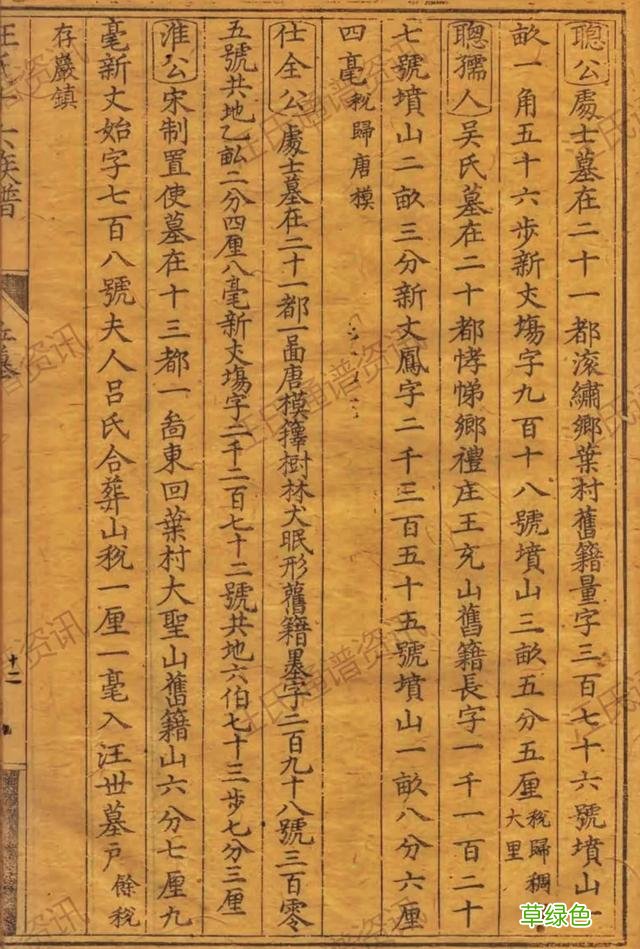 聰公處士墓在二十一都滚繡鄉葉村舊籍量字三百七十六號墳山一
畝一角五十六步新丈塲字九百十八號墳山三畝五分五厘稅歸稠大里
聰孺人吴氏墓在二十都孝悌鄉禮庄王充山舊籍長字一千一百二十
七號墳山二畝三分新丈鳳字二千三百五十五號墳山一畝八分六厘
四毫稅歸唐模
仕全公處士墓在二十一都一啚唐模籜樹林犬眠形舊籍墨字二百九十八號三百零
五號共地乙畝二分四厘八毫新丈塲字二千二百七十二號共地六伯七十三步七分三厘
淮公宋制置使墓在十三都一啚東回葉村大聖山舊籍山六分七厘九
毫新丈始字七百八號夫人吕氏合葬山稅一厘一毫入汪世墓户餘稅
存巖鎮
十六族譜
墓
十二
汪氏通谱资讯
草绿色